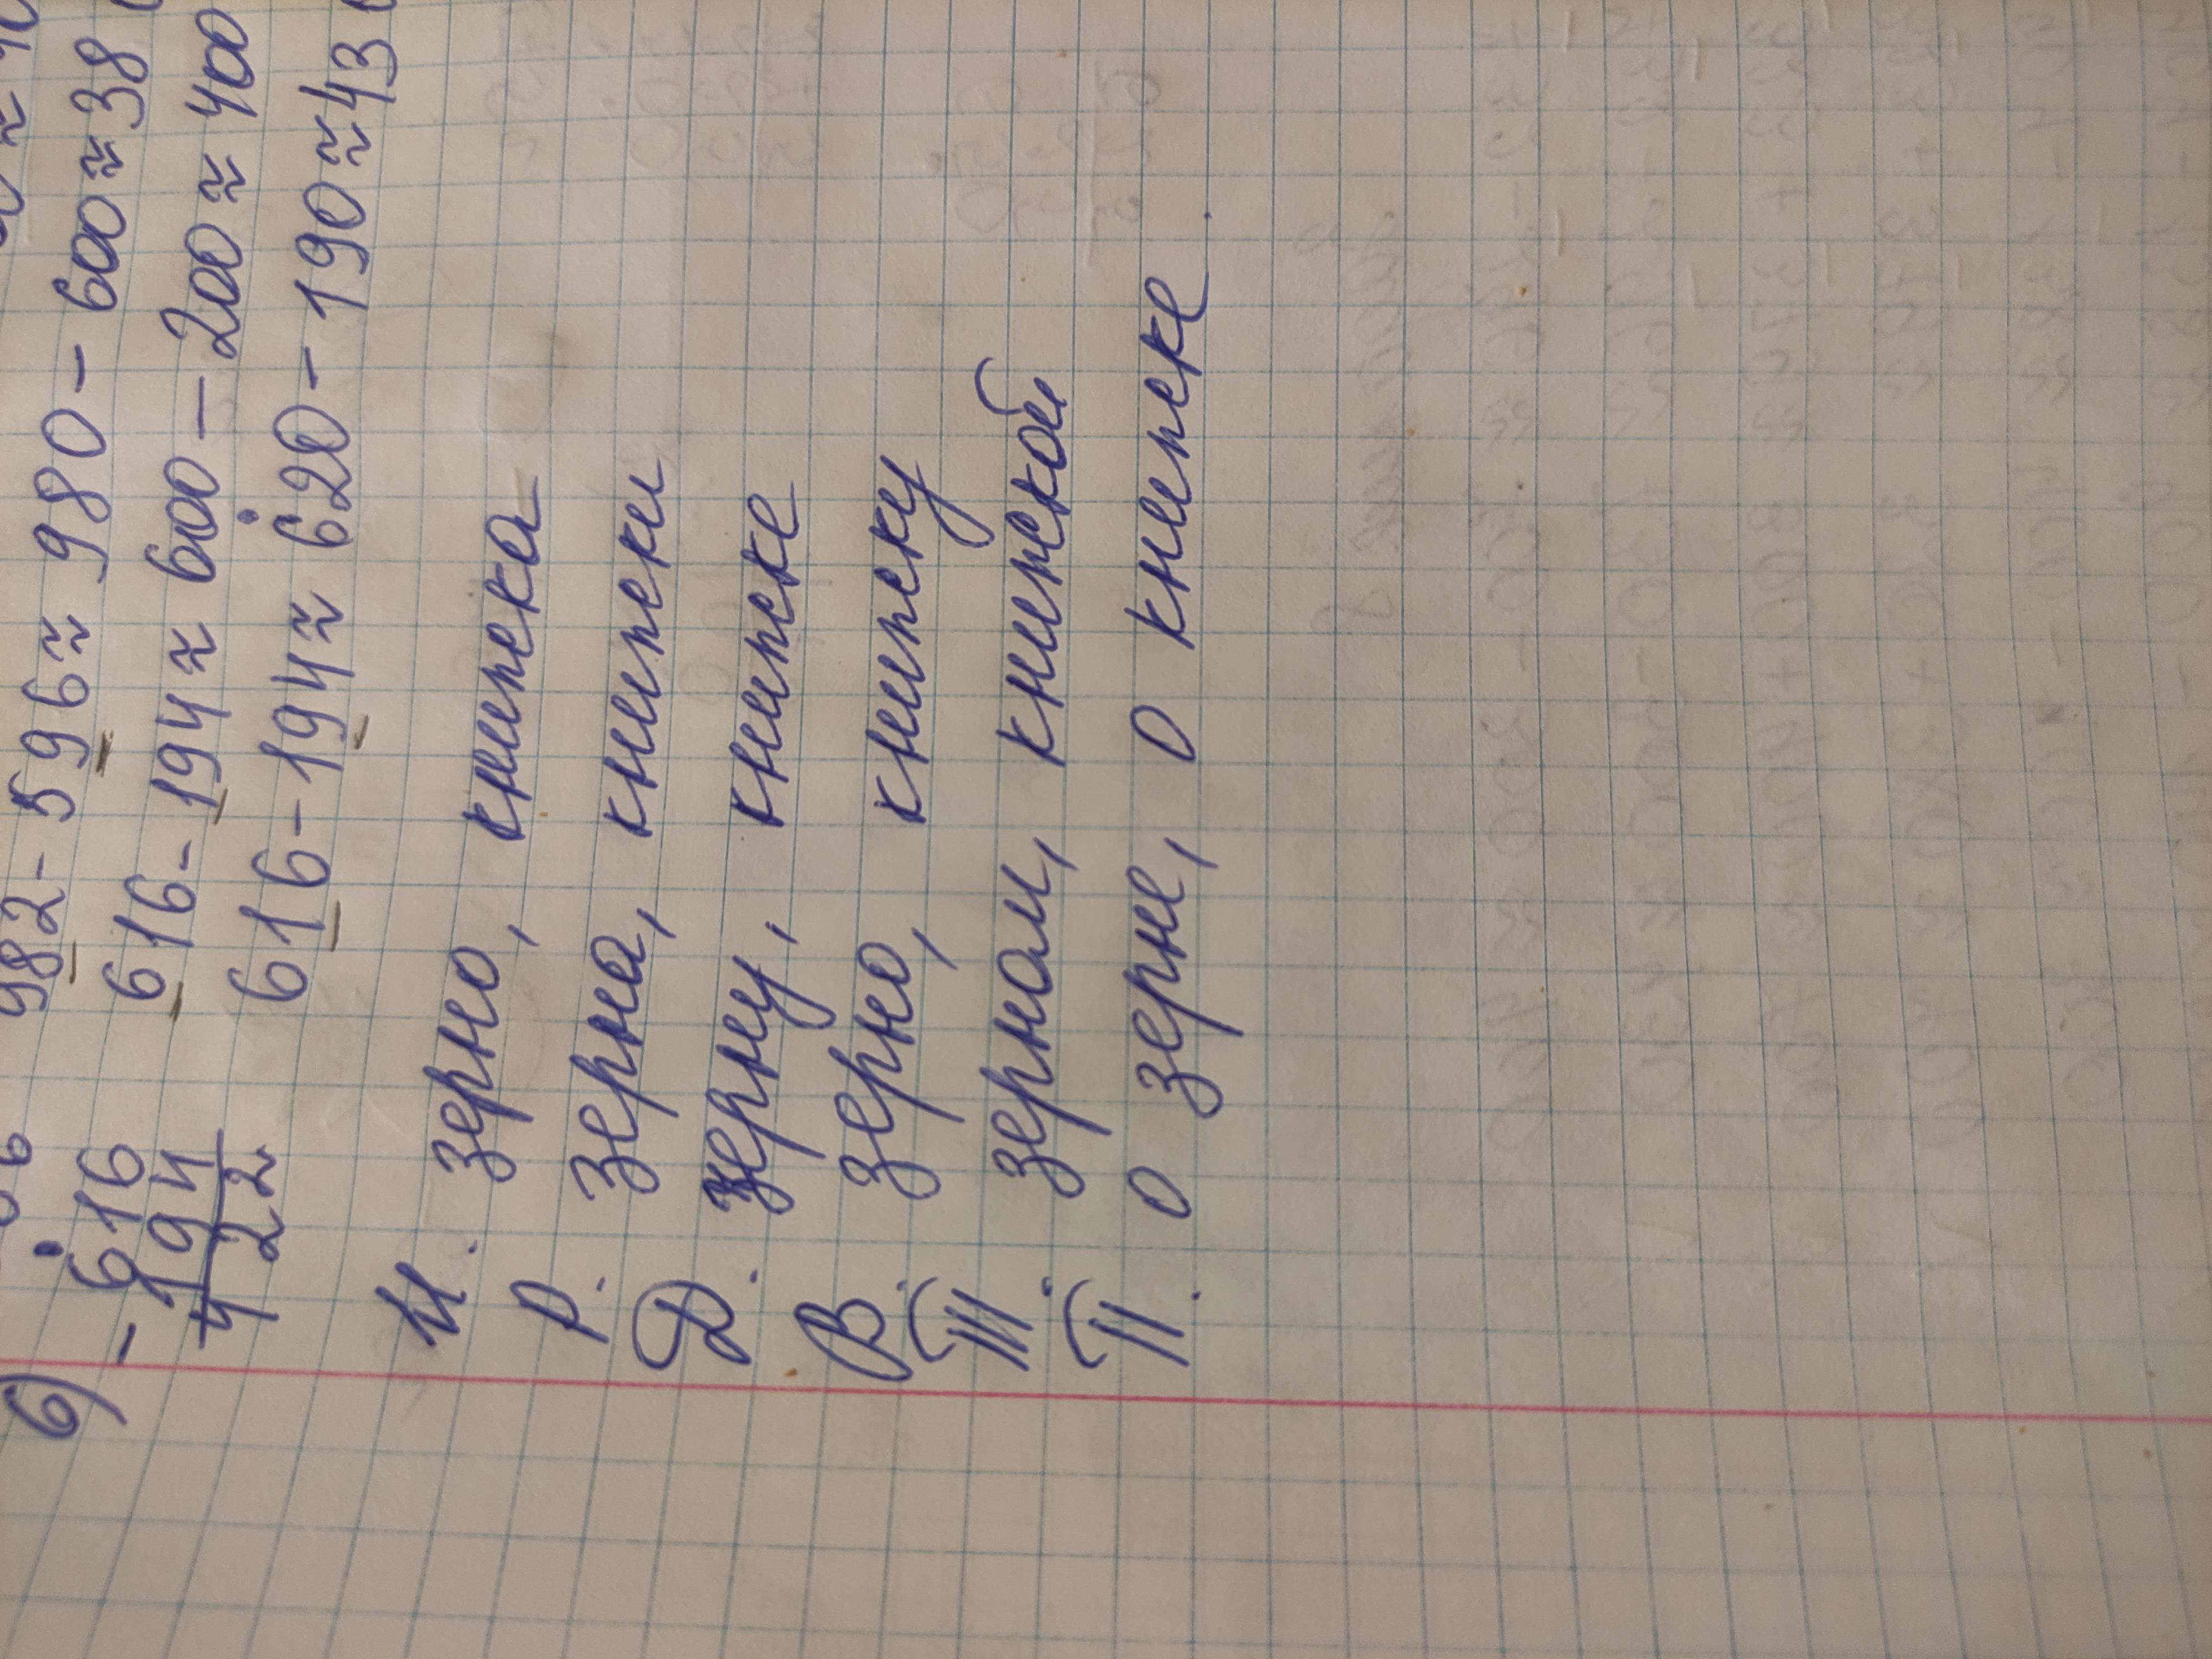 982 - 596 ≈ 980 - 600 ≈ 38
6) - 616 616 - 194 ≈ 600 - 200 ≈ 400
194 616 - 194 ≈ 620 - 190 ≈ 43
422
И. зерно, книжка
Р. зерна, книжки
Д. зерну, книжке
В. зерно, книжку
Т. зерном, книжкой
П. о зерне, о книжке